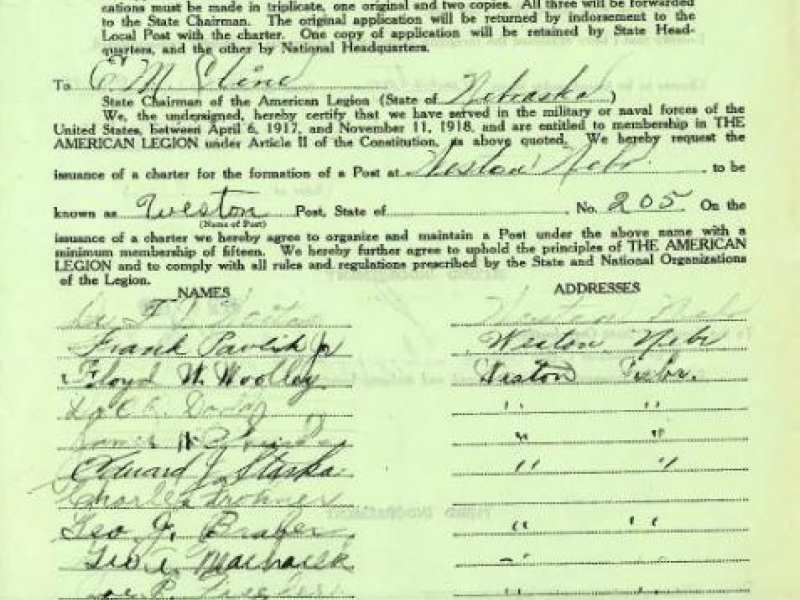 cations must be made in triplicate, one original and two copies. All three will be forwarded
to the State Chairman. The original application will be returned by indorsement to the
Local Post with the charter. One copy of application will be retained by State Head-
quarters, and the other by National Headquarters.
To E M Cline
State Chairman of the American Legion (State of Nebraska)
We, the undersigned, hereby certify that we have served in the military or naval forces of the
United States, between April 6, 1917, and November 11, 1918, and are entitled to membership in THE
AMERICAN LEGION under Article II of the Constitution, as above quoted. We hereby request the
issuance of a charter for the formation of a Post at Weston Nebr to be
known as Weston Post, State of No. 205 On the
(Name of Post)
issuance of a charter we hereby agree to organize and maintain a Post under the above name with a
minimum membership of fifteen. We hereby further agree to uphold the principles of THE AMERICAN
LEGION and to comply with all rules and regulations prescribed by the State and National Organizations
of the Legion.
NAMES ADDRESSES
Weston Neb
Frank Pavlik Jr Weston Nebr
Floyd W. Woolley Weston Nebr.
" "
" "
Edward J. Staska " "
Charles
Geo J. Braker " "
Geo
" "